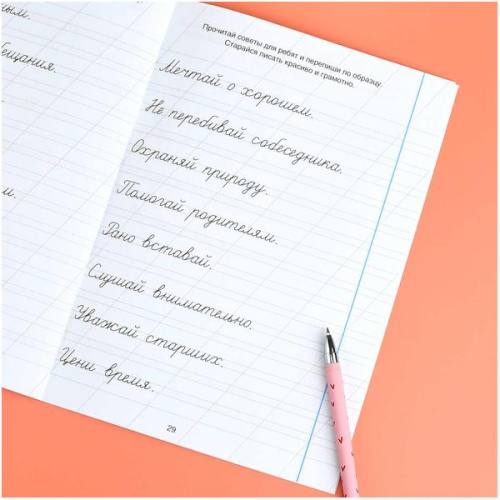 ным.
бещания.
м.
Прочитай советы для ребят и перепиши по образцу.
Старайся писать красиво и грамотно.
Мечтай о хорошем.
Не перебивай собеседника.
Охраняй природу.
Помогай родителям.
Рано вставай.
Слушай внимательно.
Уважай старших.
Цени время.
29